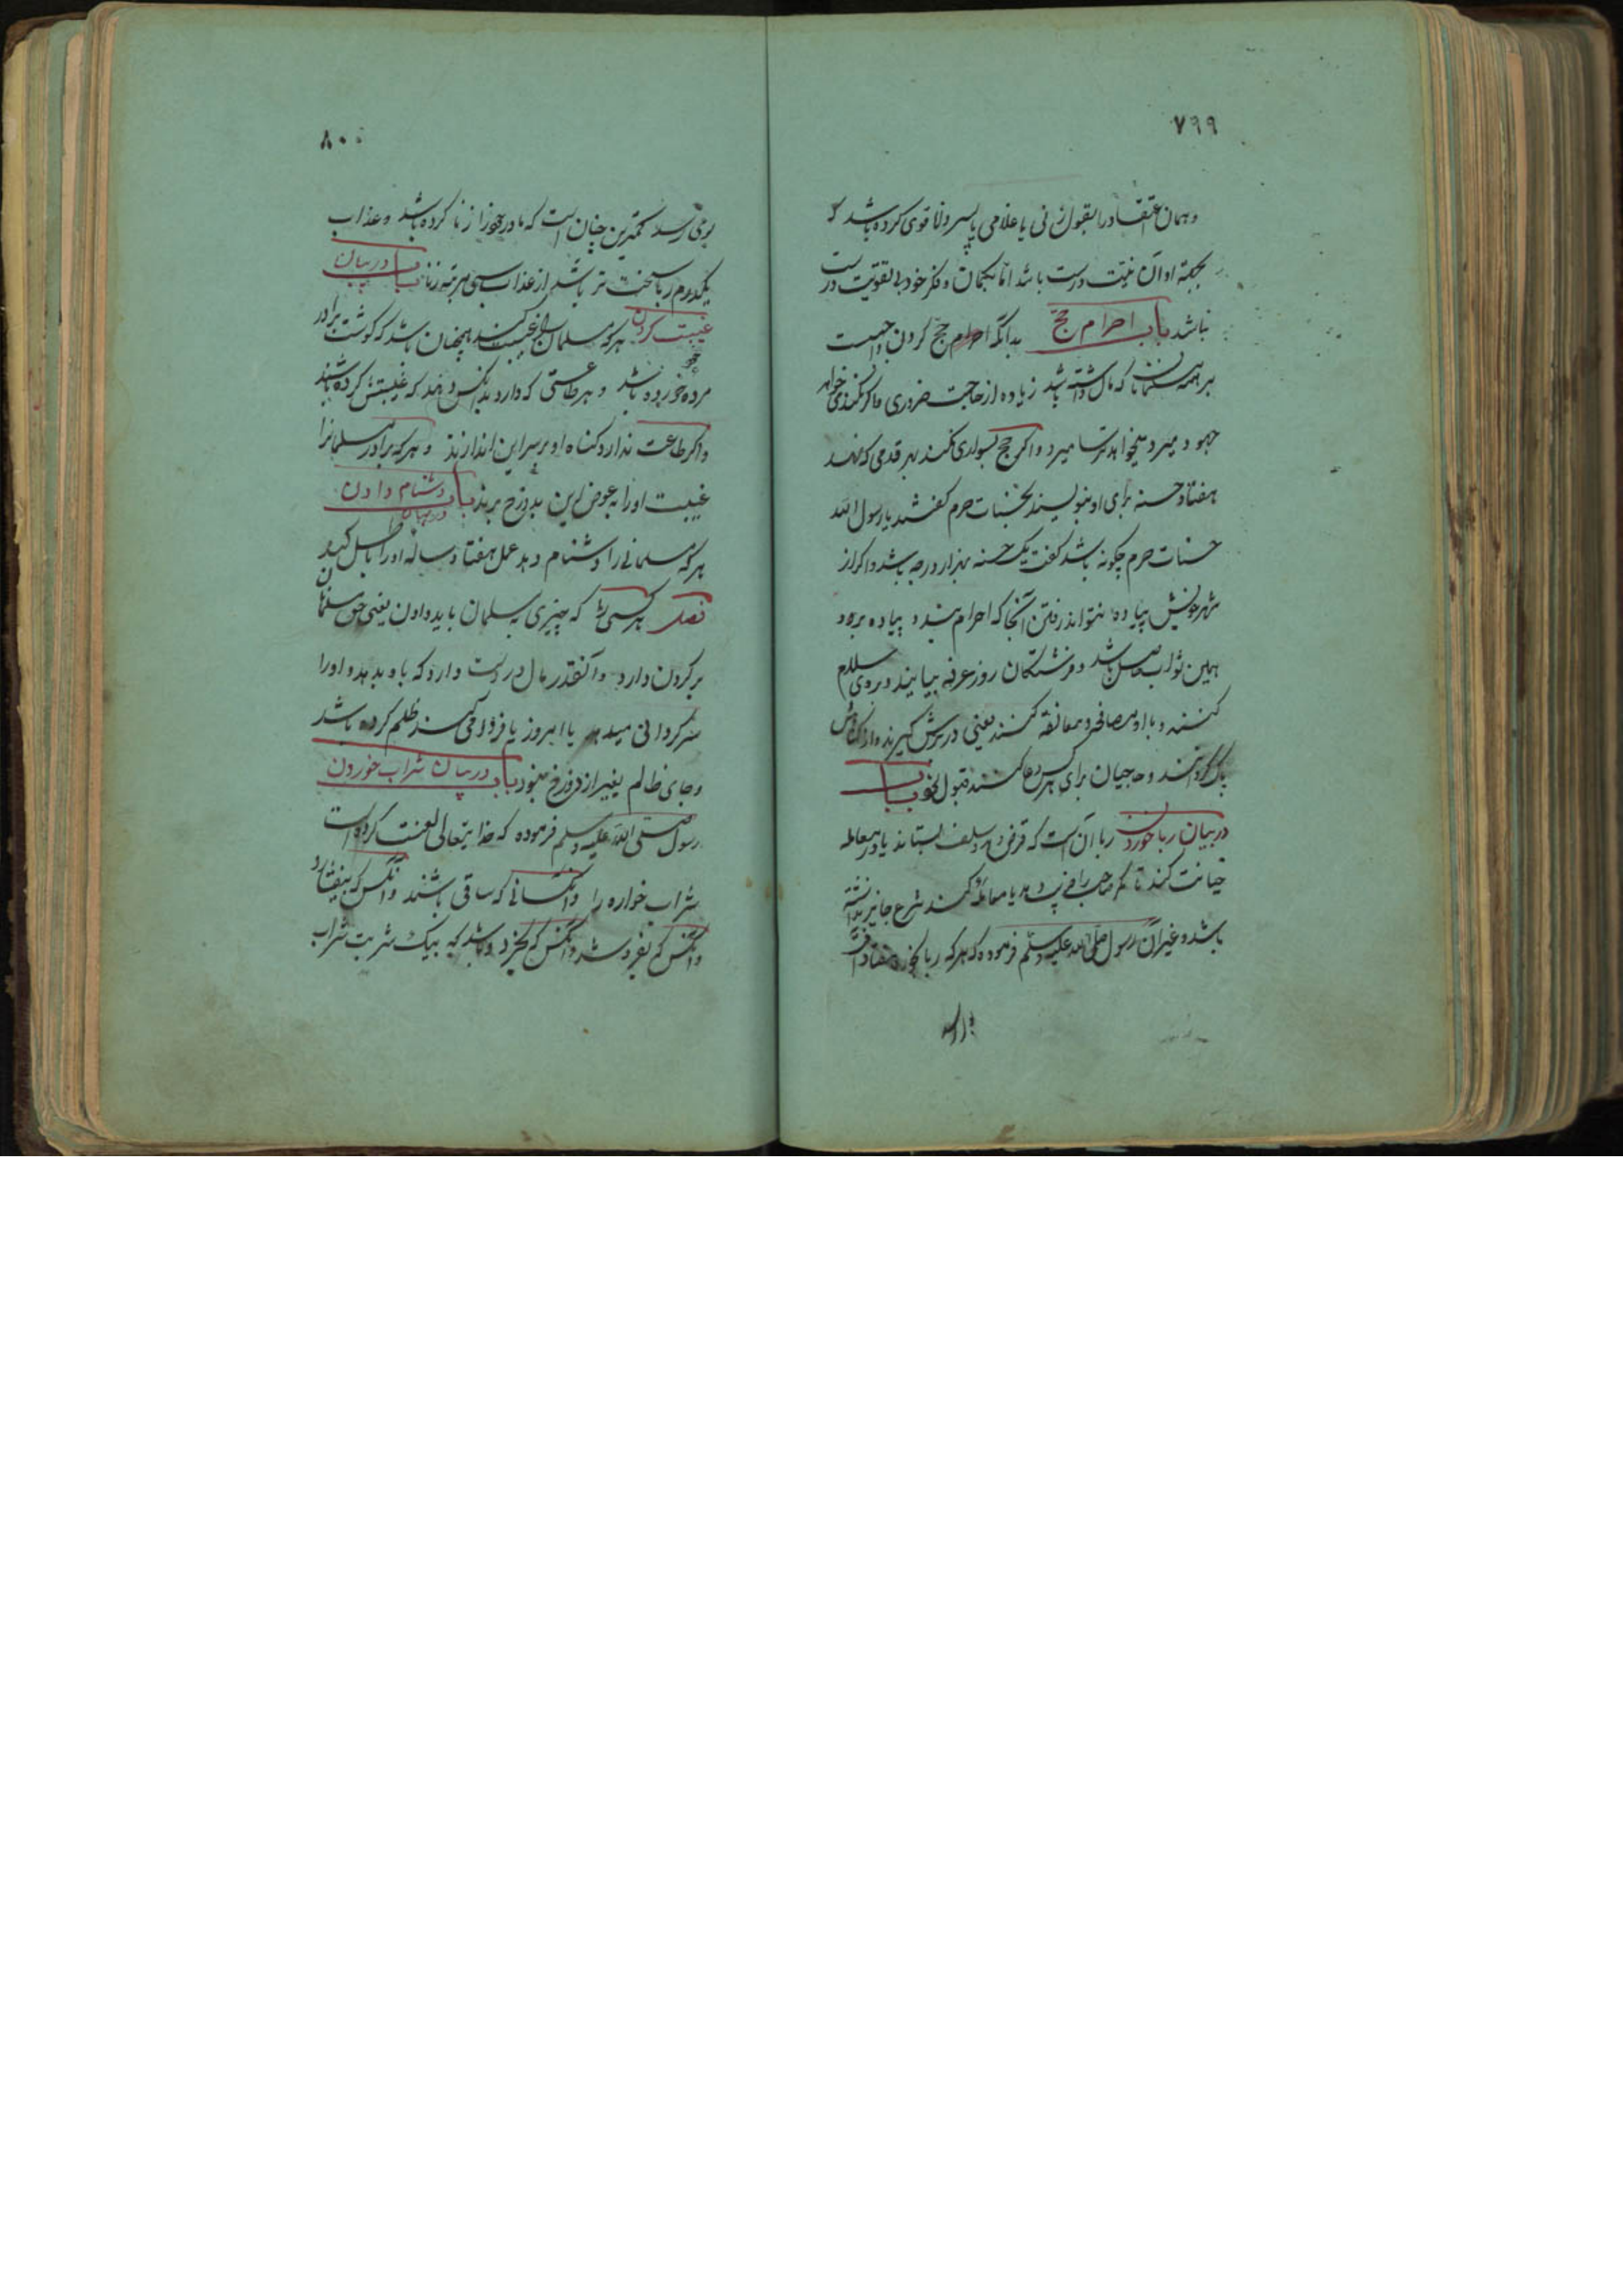 ۷۹۹
و همان اعتقاد را بقول زنی یا غلامی یا پسر ولا قوی کرده باشد که
بجهة او آن نیت درست باشد اما بگمان و فکر خود بی تقویت درست
نباشد باب احرام حج بدانکه احرام حج کردن واجبست
بر همه مسلمانان که مال داشته باشد زیاده از حاجت ضروری و اگر نکند می خواهد
جهود میرد میخواهد ترسا میرد و اگر حج بسواری نکند بهر قدمی که نهد
هفتاد حسنه برای او بنویسند بحسنات حرم گفتند یا رسول الله
حسنات حرم چگونه باشد گفت یک حسنه بهزار درجه باشد و اگر از
شهر خویش پیاده نتواند رفتن آنجا که احرام بندد پیاده برود
همین ثواب حاصل باشد و فرشتگان روز عرفه بیایند و بروی سلام
کنند و با او مصافحه و معانقه کنند یعنی در برش گیرند و از گناهش
پاک گردانند و حاجیان برای هر کس دعا کنند قبول شود باب
در بیان ربا خوردن ربا آن است که قرض و سلف بستاند یا در معاملة
خیانت کند تا صاحب را فریب دهد یا معامله کند شرع جایز نداشته
باشد و غیر آن رسول صلی الله علیه وسلم فرموده که هر که ربا بخورد هفتاد آفت
۸۰۰
بوی رسد کمترین چنان است که با مادر خود زنا کرده باشد و عذاب
یکدرم ربا سخت تر باشد از عذاب سی مرتبه زنا باب در بیان
غیبت کردن هر که مسلمان را غیبت کند همچنان باشد که گوشت برادر
مرده خود خورده باشد و هر طاعتی که دارد بدانکس دهند که غیبتش کرده باشد
و اگر طاعت ندارد گناه او بر سر این اندازند و هر که برادر مسلمانرا
غیبت او را به عوض این بدوزخ برند باب در بیان دشنام دادن
هر که مسلمانی را دشنام دهد عمل هفتاد ساله او را باطل کند
فصل هر کسی را که چیزی به مسلمان باید دادن یعنی حق مسلمان
بر گردن دارد و آنقدر مال در دست دارد که باو بدهد و او را
سرگردانی میدهد یا امروز یا فردا می کند ظلم کرده باشد
و جای ظالم بغیر از دوزخ نبود باب در بیان شراب خوردن
رسول صلی الله علیه وسلم فرموده که خدایتعالی لعنت کرده است
شراب خواره را و آنکسانی که ساقی باشند و آنکس که بیفشارد
و آنکس که بفروشد و آنکس که بخرد و باشد که بیک شربت شراب